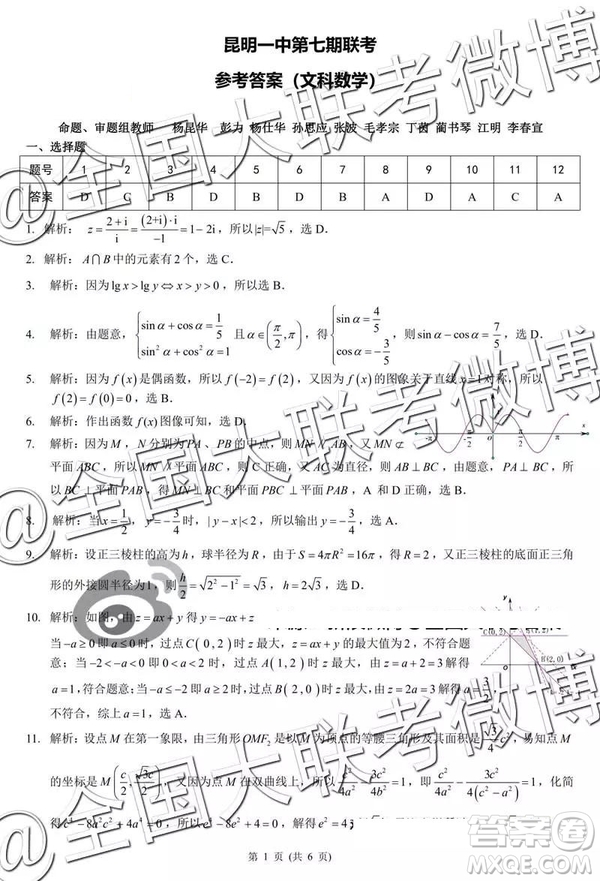 昆明一中第七期联考
参考答案（文科数学）
命题、审题组教师 杨昆华 彭力 杨仕华 孙思应 张波 毛孝宗 丁茵 蔺书琴 江明 李春宣
一、选择题
题号 1 2 3 4 5 6 7 8 9 10 11 12
答案 D C B D B D B A D A C A
1. 解析：z=(2+i)/i=((2+i)·i)/(-1)=1-2i，所以|z|=√5，选 D.
2. 解析：A∩B中的元素有2个，选 C.
3. 解析：因为 lg x>lg y⇔x>y>0，所以选 B.
4. 解析：由题意，{sin α+cos α=1/5, sin²α+cos²α=1 且 α∈(π/2,π)，得 {sin α=4/5, cos α=-3/5，所以 sin α-cos α=7/5，选 D.
5. 解析：因为 f(x) 是偶函数，所以 f(-2)=f(2)，又因为 f(x) 的图象关于直线 x=1 对称，所以
f(2)=f(0)=0，选 B.
6. 解析：作出函数 f(x) 图像可知，选 D.
7. 解析：因为 M，N 分别为 PA、PB 的中点，则 MN∥AB，又因为 MN⊄
平面 ABC，所以 MN∥平面 ABC，因为 AB 为直径，所以 AC⊥BC，由题意，PA⊥BC，所
以 BC⊥平面PAC，得 MN⊥BC 和平面 PBC⊥平面 PAC，A 和 D 正确，选 B.
8. 解析：当 x=1/2，y=-3/4 时，|y-x|<2，所以输出 y=-3/4，选 A.
9. 解析：设正三棱柱的高为 h，球半径为 R，由于 S=4πR²=16π，得 R=2，又正三棱柱的底面正三角
形的外接圆半径为1，则 h/2=√(2²-1²)=√3，h=2√3，选 D.
10. 解析：如图，由 z=ax+y 得 y=-ax+z
当 -a≥0 即 a≤0 时，过点 C(0,2) 时，直线 z=ax+y 的最大值为2，不符合题
意；当 -2<-a<0 即 0<a<2 时，过点
a=1，符合题意；当 -a≤-2 即 a≥2 时，过点 B(2,0)
不符合，综上 a=1，选 A.
11. 解析：设点 M 在第一象限，由三角形 OMF₂ 是以 M 为顶点的等腰三角形，易知点 M
的坐标是 M(c/2,√3c/2)，点 M 在双曲线上，所以 c²/4a²-3c²/4b²=1，即 c²/4a²-3c²/4(c²-a²)=1，化简
得 c⁴-8a²c²+4a⁴=0，所以 e⁴-8e²+4=0，解得
第 1 页 (共 6 页)
@全国大联考微博
@全国大联考微博
@全国大联考微博
答案圈